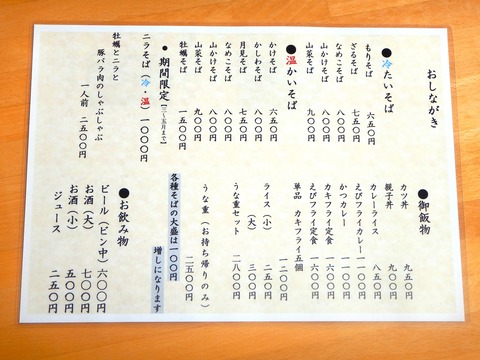 おしながき
●冷たいそば
もりそば 六五〇円
ざるそば 七五〇円
なめこそば 八〇〇円
山かけそば 八〇〇円
山菜そば 九〇〇円
●温かいそば
かけそば 六五〇円
かしわそば 八〇〇円
月見そば 七五〇円
なめこそば 八〇〇円
山かけそば 八〇〇円
山菜そば 九〇〇円
牡蠣そば 一五〇〇円
●期間限定【二~五月まで】
ニラそば(冷・温)一〇〇〇円
牡蠣とニラと
豚バラ肉のしゃぶしゃぶ
一人前 二五〇〇円
●御飯物
カツ丼 九五〇円
親子丼 九〇〇円
カレーライス 八五〇円
えびフライカレー 一一〇〇円
かつカレー 一一〇〇円
カキフライ定食 一六〇〇円
えびフライ定食 一六〇〇円
単品 カキフライ五個
一二〇〇円
ライス(小) 二五〇円
(大) 三〇〇円
うな重セット 二八〇〇円
うな重(お持ち帰りのみ)
二五〇〇円
各種そばの大盛は一〇〇円
増しになります
●お飲み物
ビール(ビン中) 六〇〇円
お酒(大) 七〇〇円
お酒(小) 五〇〇円
ジュース 二五〇円